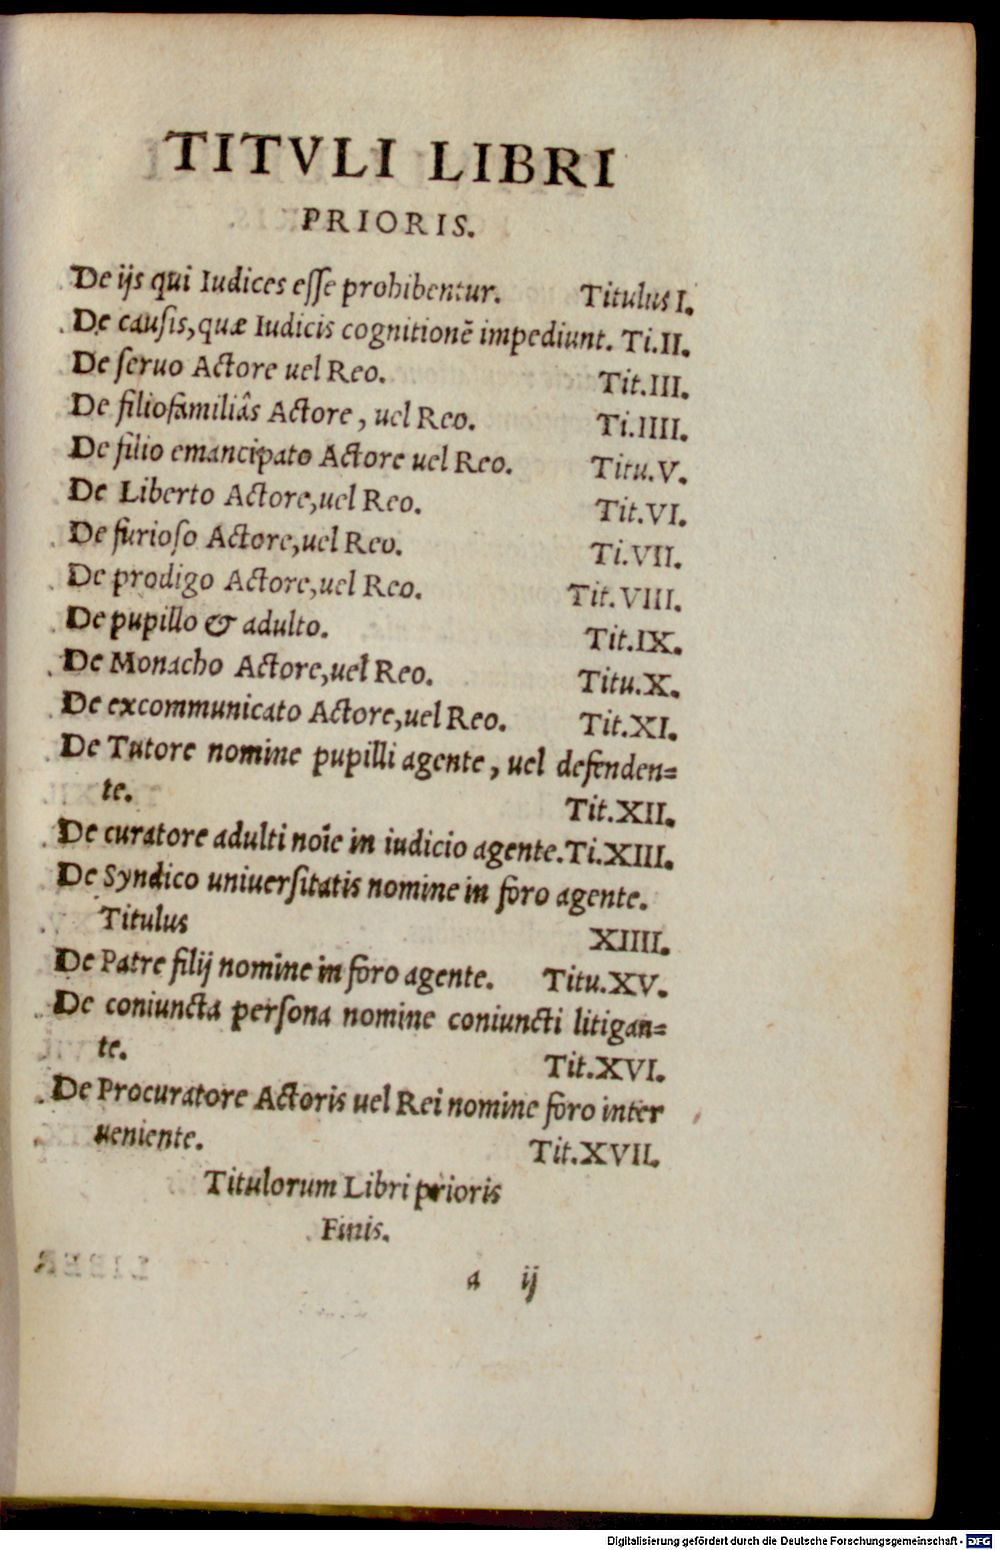 TITVLI LIBRI
PRIORIS.
De ijs qui Iudices eſſe prohibentur. Titulus I.
De cauſis, quæ Iudicis cognitionē impediunt. Ti.II.
De ſeruo Actore uel Reo. Tit.III.
De filiofamiliâs Actore, uel Reo. Ti.IIII.
De filio emancipato Actore uel Reo. Titu.V.
De Liberto Actore, uel Reo. Tit.VI.
De furioſo Actore, uel Reo. Ti.VII.
De prodigo Actore, uel Reo. Tit.VIII.
De pupillo & adulto. Tit.IX.
De Monacho Actore, uel Reo. Titu.X.
De excommunicato Actore, uel Reo. Tit.XI.
De Tutore nomine pupilli agente, uel defenden=
te. Tit.XII.
De curatore adulti noīe in iudicio agente. Ti.XIII.
De Syndico uniuerſitatis nomine in foro agente.
Titulus XIIII.
De Patre filij nomine in foro agente. Titu.XV.
De coniuncta perſona nomine coniuncti litigan=
te. Tit.XVI.
De Procuratore Actoris uel Rei nomine foro inter
ueniente. Tit.XVII.
Titulorum Libri prioris
Finis.
a ij
Digitalisierung gefördert durch die Deutsche Forschungsgemeinschaft - DFG